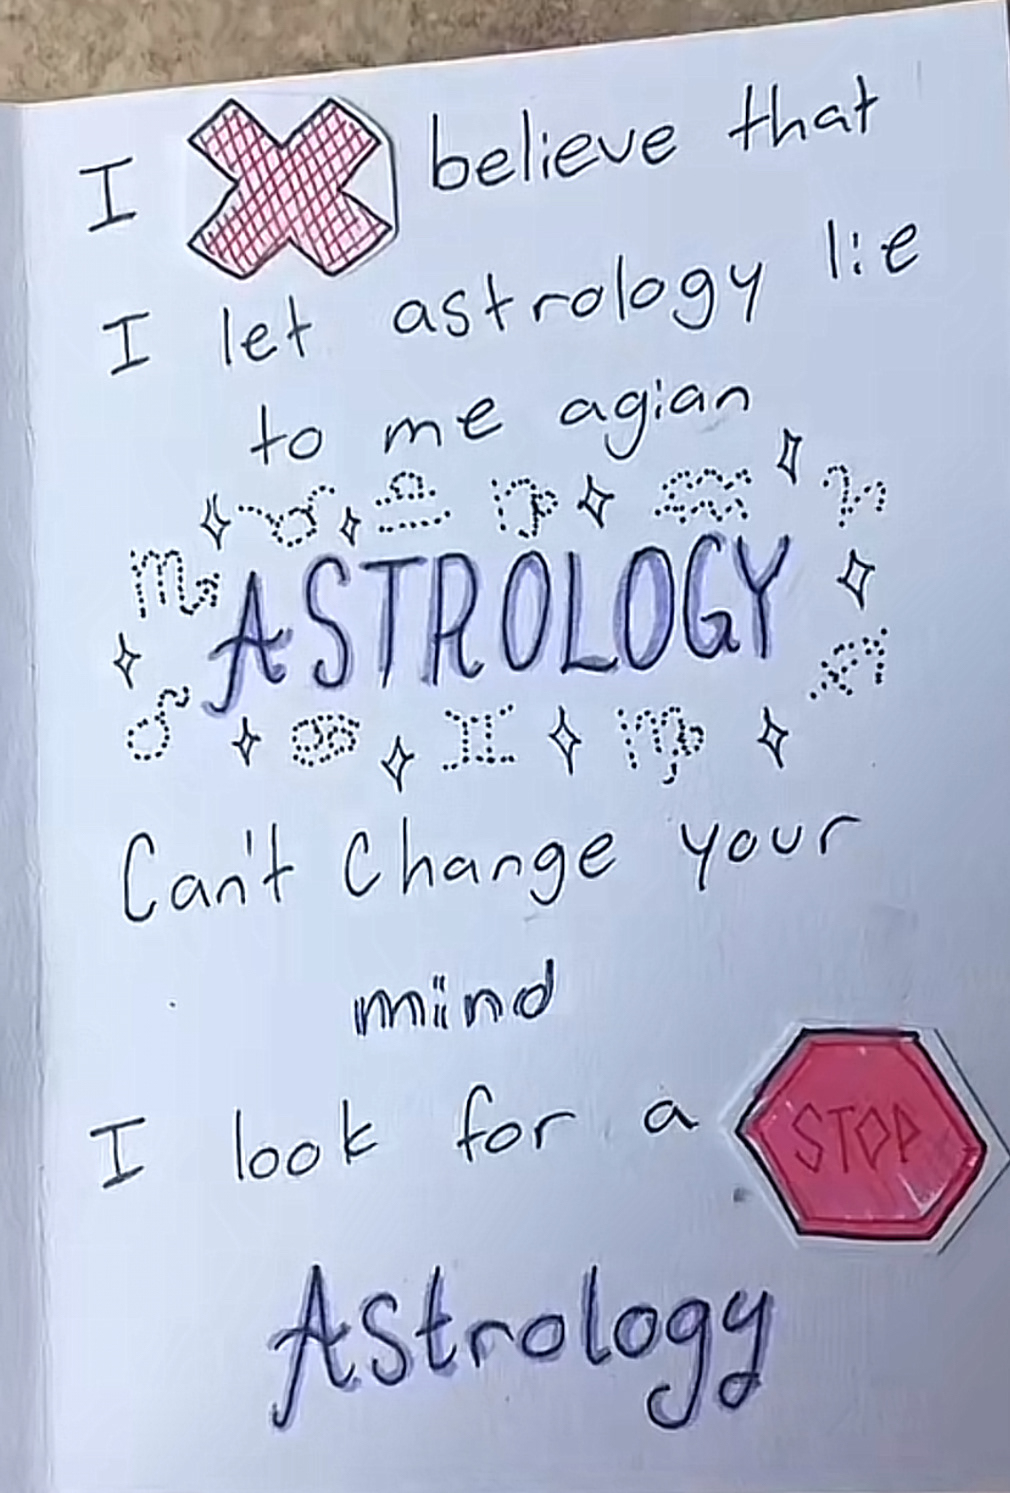 I believe that
I let astrology lie
to me agian
ASTROLOGY
Can't Change your
mind
I look for a STOP
Astrology